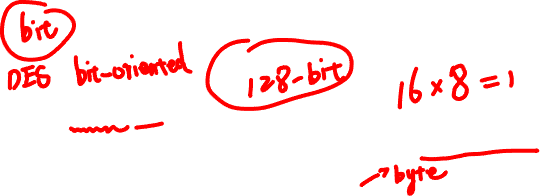 bit
DES bit-oriented 128-bit
16×8=1
→byte